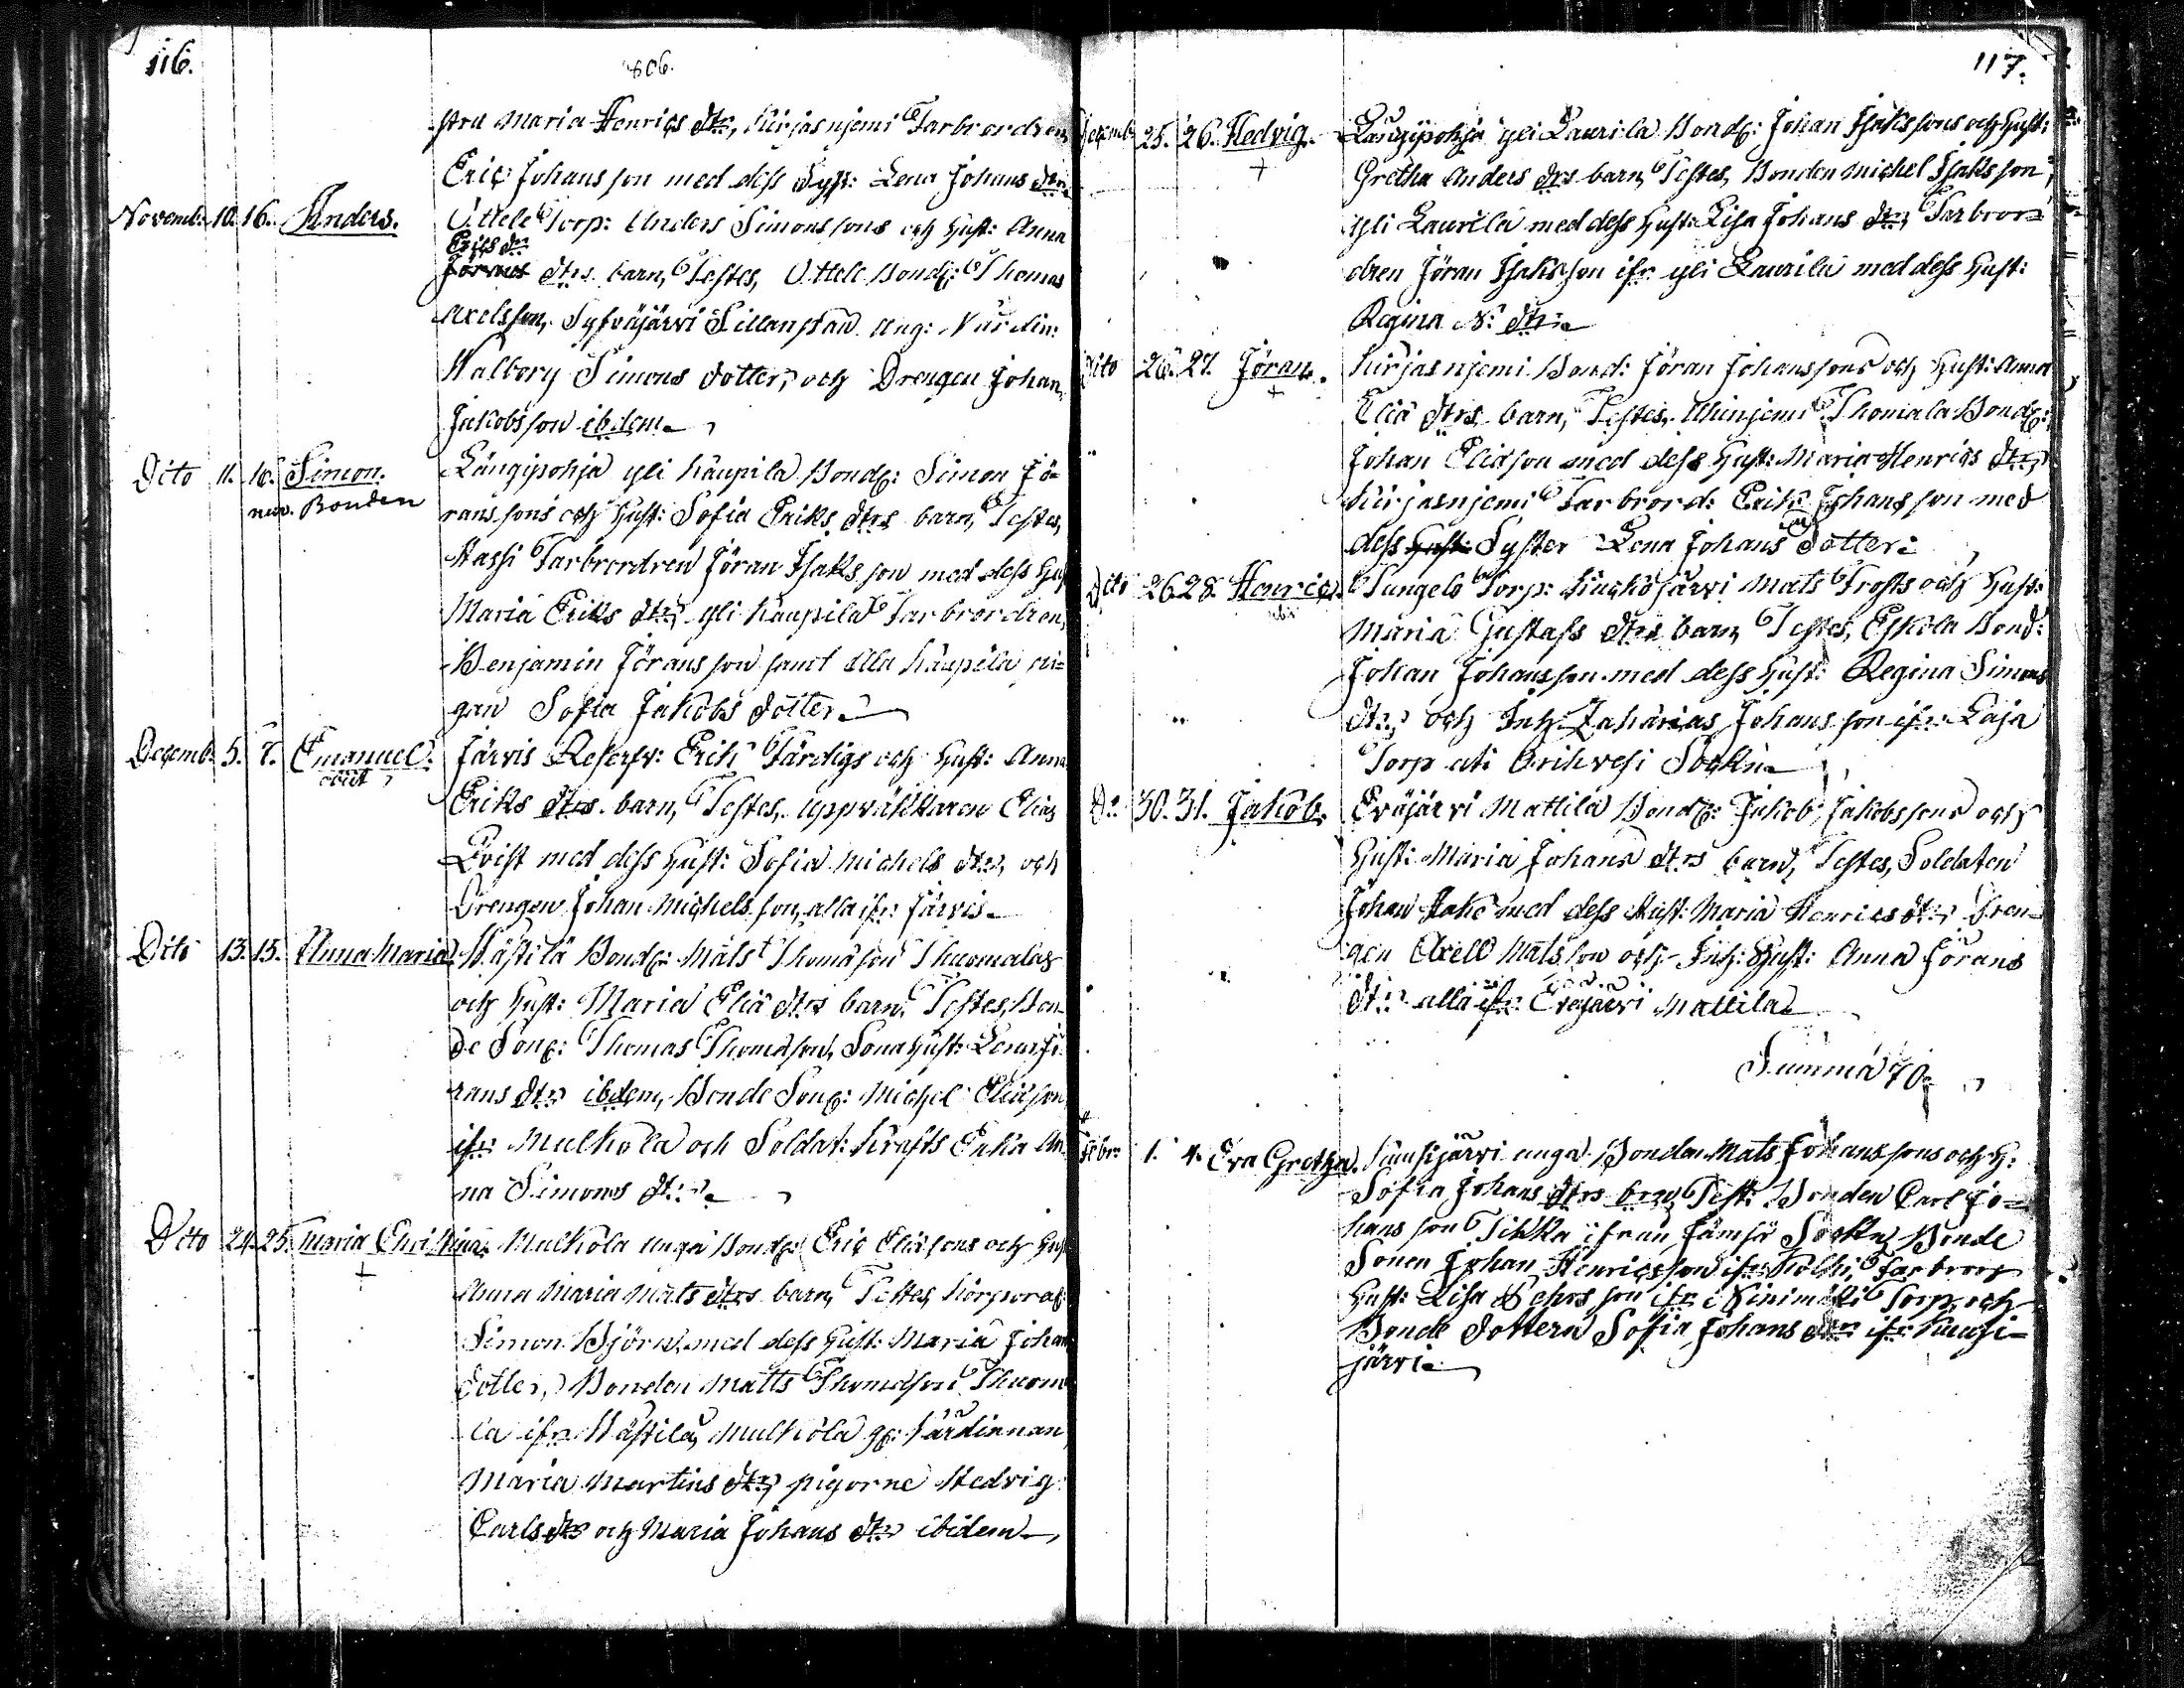 116.
806.
stru Maria Henrigs dtr, Kirjasnjemi Farbrordren
Eric Johansson med dess Syst: Lena Johans dtr
Novemb: 10. 16. Anders. Uttele Torp: Anders Simonssons och Hust: Anna
Erics dr
dtrs barn, Testes, Uttele Bond: Thomas
Axelsson, Syfväjärvi Sillanpää ung: Värdin:
Walborg Simons dotter, och Drengen Johan
Jakobsson ibidem
Dito 11. 16. Simon. Längipohja yli Kaupila Bond: Simon Jö-
Bonden ranssons och Hust: Sofia Eriks dtrs barn, Testes,
Hassi Farbrordren Jöran Isaksson med dess Hust
Maria Eriks dtr, yli Kaupila Farbrordren
Benjamin Jöransson samt alla Kaupila pi-
gan Sofia Jakobs dotter
Decemb: 5. 7. Emanuel. Järvis Reserfv: Erik Färdigs och Hust: Anna
obiit Eriks dtrs barn, Testes, uppvaktaren Elias
Qvist med dess Hust: Sofia Michels dtr, och
Drengen Johan Michelsson, alla ifr: Järvis
Dito 13. 15. Anna Maria. Västilä Bond: Mats Thomasson Thuomalas
och Hust: Maria Eliä dtrs barn, Testes, Bon-
de Son: Thomas Thomasson, Sona Hust: Lena Jö-
rans dtr ibidem, Bonde Son: Michel Eliäson
ifr: Mulkola och Soldat: Krafts Enka An-
na Simons dtr
Dito 24. 25. Maria Christina. Mulkola unga Bond: Eric Eliäsons och Hust
Anna Maria Mats dtrs barn, Testes, Korporal:
Simon Björn med dess Hust: Maria Johans
dotter, Bonden Matts Thomasson Thuoma-
la ifr: Västilä, Mulkola g: Värdinnan
Maria Martins dtr, pigorne Hedvig
Carls dtr och Maria Johans dtr ibidem
117.
Decemb: 25. 26. Hedvig. Längipohja yli Laurila Bond: Johan Isakssons och Hust:
Gretha Anders dtrs barn, Testes, Bonden Michel Isaksson,
yli Laurila med dess Hust: Lisa Johans dtr, Farbror-
dren Jöran Isaksson ifr: yli Laurila med dess Hust:
Regina N: dtr
Dito 26. 27. Jöran. Kirjasnjemi Bond: Jöran Johanssons och Hust: Anna
Eliä dtrs barn, Testes, Thomala Bond:
Johan Eliäson med dess Hust: Maria Henrigs dtr,
Kirjasnjemi Farbrord: Erik Johansson med
dess Hust: Syster Lena Johans dotter
Dito 26 28. Henric. Tungelo Torp: Kuckojärvi Mats Trosts och Hust:
Maria Gustafs dtrs barn, Testes, Eskola Bond:
Johan Johansson med dess Hust: Regina Simons
dtr, och Inh: Zaharias Johansson ifr: Laja
Torp uti Orihvesi Sockn
Do 30. 31. Jakob. Eväjärvi Mattila Bond: Jakob Jakobssons och
Hust: Maria Johans dtrs barn, Testes, Soldaten
Johan med dess Hust: Maria Henrics dtr, Dren-
gen Axell Matsson och Inh: Hust: Anna Jörans
dtr alla ifr: Eväjärvi Mattila
Summa 70
Febr: 1. 4. Eva Gretha. unga Bonden Mats Johanssons och H:
Sofia Johans dtrs brn, Test: Bonden Carl Jo-
hansson Tikka ifrån Jämsä Sockn, Bonde
Sonen Johan Henricsson ifr: Kolhi, Farbrors
Hust: Lisa ifr: Torp, och
Bonde Dottern Sofia Johans dtr ifr:
järvi